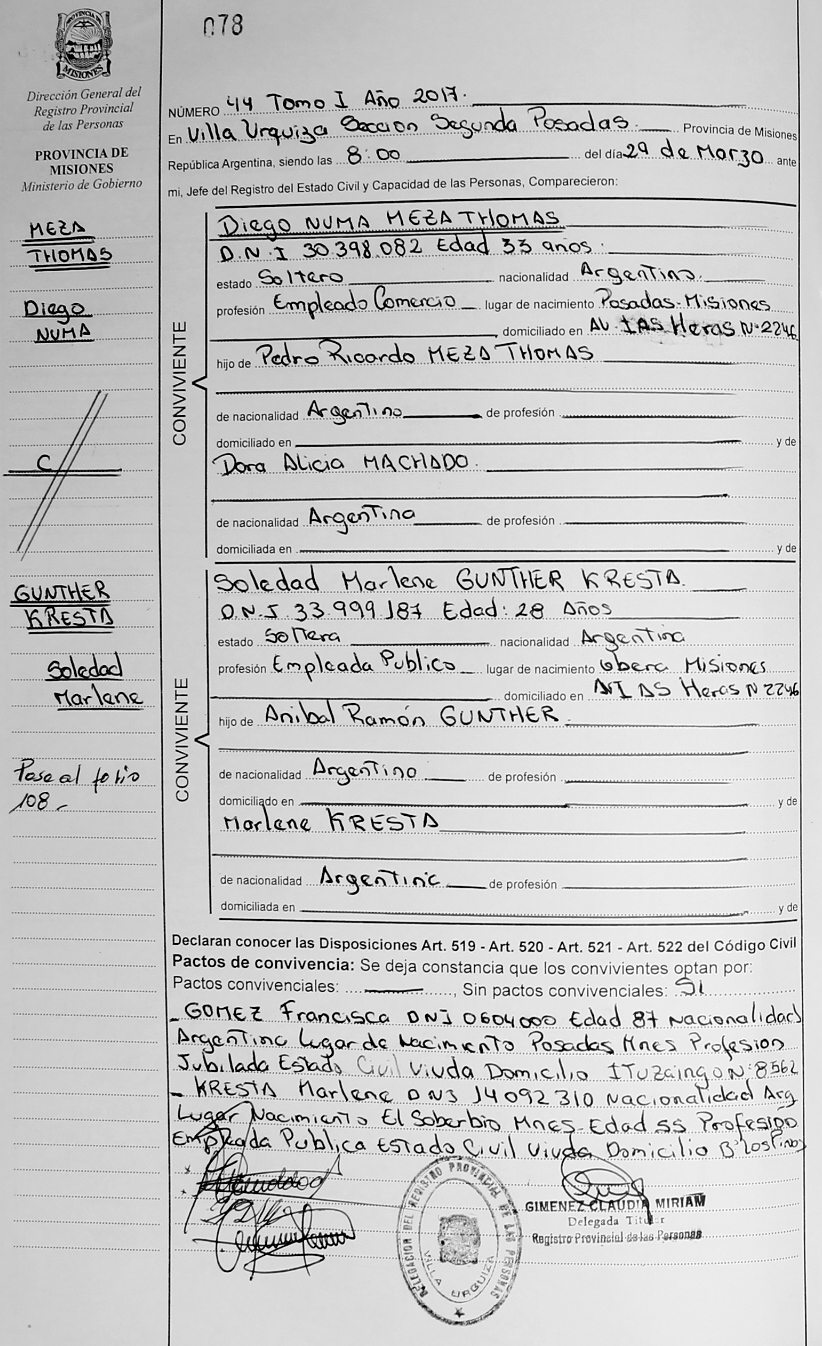 078
PROVINCIA DE
MISIONES
Dirección General del
Registro Provincial
de las Personas
PROVINCIA DE
MISIONES
Ministerio de Gobierno
MEZA
THOMAS
Diego
NUMA
C
GUNTHER
KRESTA
Soledad
Marlene
Pase al folio
108
NÚMERO 44 Tomo I Año 2017.
En Villa Urquiza Seccion Segunda Posadas. Provincia de Misiones
República Argentina, siendo las 8:00 del día 29 de Marzo ante
mi, Jefe del Registro del Estado Civil y Capacidad de las Personas, Comparecieron:
CONVIVIENTE
Diego NUMA MEZA THOMAS
D.N.I 30 398 082 Edad 33 años.
estado Soltero nacionalidad Argentino.
profesión Empleado Comercio lugar de nacimiento Posadas-Misiones
, domiciliado en AV. LAS Heras Nº 2246
hijo de Pedro Ricardo MEZA THOMAS
de nacionalidad Argentino de profesión
domiciliado en y de
Dora Alicia MACHADO.
de nacionalidad Argentina de profesión
domiciliada en y de
CONVIVIENTE
Soledad Marlene GUNTHER KRESTA.
D.N.I 33.999.187 Edad: 28 Años
estado Soltera nacionalidad Argentina
profesión Empleada Publico lugar de nacimiento Obera Misiones
, domiciliado en LAS Heras N 2246
hijo de Anibal Ramón GUNTHER
de nacionalidad Argentino de profesión
domiciliado en y de
Marlene KRESTA
de nacionalidad Argentina de profesión
domiciliada en y de
Declaran conocer las Disposiciones Art. 519 - Art. 520 - Art. 521 - Art. 522 del Código Civil
Pactos de convivencia: Se deja constancia que los convivientes optan por:
Pactos convivenciales: , Sin pactos convivenciales: SI
GOMEZ Francisca DNI 0604000 Edad 87 Nacionalidad
Argentina Lugar de Nacimiento Posadas Mnes Profesion
Jubilada Estado Civil Viuda Domicilio ITuzaingo N: 8562
KRESTA Marlene DNI 14092310 Nacionalidad Arg
Lugar Nacimiento El Soberbio Mnes Edad 55 Profesion
Empleada Publica Estado Civil Viuda Domicilio Bº Los Pinos
DELEGACION DEL REGISTRO PROVINCIAL DE LAS PERSONAS
VILLA URQUIZA
GIMENEZ CLAUDIA MIRIAM
Delegada Titular
Registro Provincial de las Personas